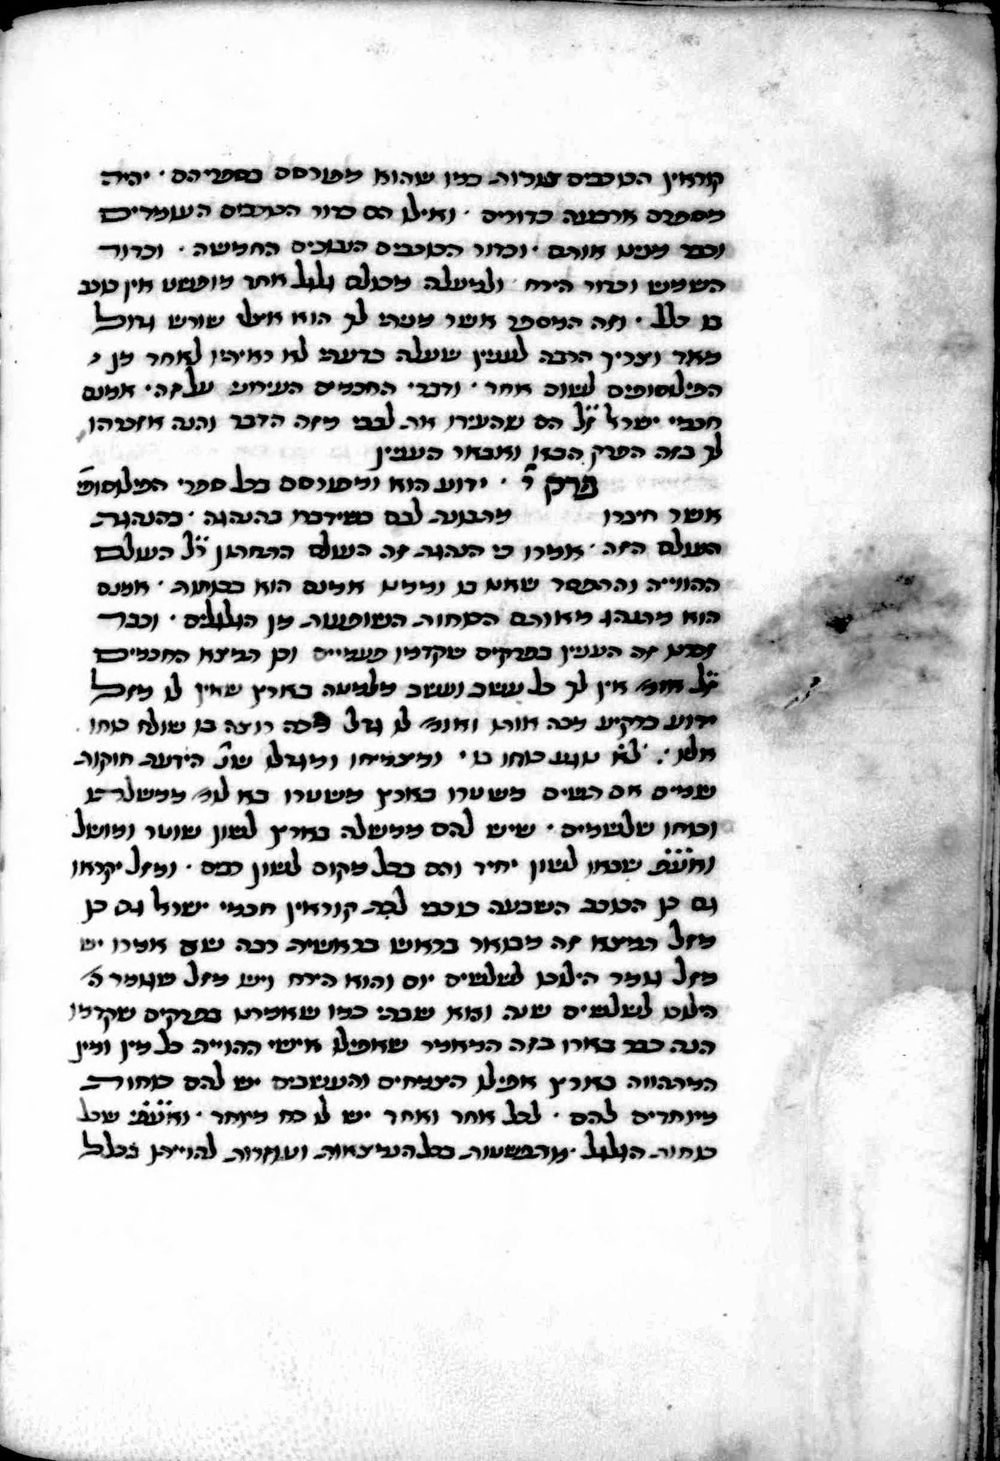 קוראין הכוכבים צורות כמו שהוא מפורסם בספריהם · יהיה
מספרם ארבעה כדורים · ואילו הם כדור הכוכבים העומדים
וכבר מנינו אותם · וכדור הכוכבים הנבוכים החמשה · וכדור
השמש וכדור הירח · ולמעלה מכולם גלגל אחד מופשט אין כוכב
בו כלל · וזה המספר אשר מניתי לך הוא אצלי שורש גדול
מאד וצריך הרבה לענין שעלה בדעתי לא ראיתיו לאחד מן
הפילוסופים לשום אחד · ודברי החכמים העירוני על זה · אמנם
חכמי ישראל ז״ל הם שהעירו את לבבי מזה הדבר והנה אזכרהו
לך בזה הפרק הבא ואבאר הענין
פרק י׳ · ידוע הוא ומפורסם בכל ספרי הפילוסופי׳
אשר חיברו מתבונה לבם כשידברו בהנהגה · בהנהגת
העולם הזה · אמרו כי הנהגת זה העולם התחתון ר״ל העולם
ההווייה וההפסד שאנו בו וממנו אמנם הוא בכוחות · אמנם
הוא מתנהג מאותם הכוחות השופעות מן הגלגלים · וכבר
זכרנו זה הענין בפרקים שקדמו פעמיים וכן תמצא החכמים
ז״ל אומ׳ אין לך כל עשב ועשב מלמטה בארץ שאין לו מזל
ידוע ברקיע מכה אותו ואומ׳ לו גדל
אליו · נוגע כוחו בו · ומצמיחו ומגדלו שנ׳ הידעת חוקות
שמים אם תשים משטרו בארץ משטרו בא לו׳ ממשלתו
וכוחו שלשמים · שיש להם ממשלה בארץ לשון שוטר ומושל
ואע״פ שבאו לשון יחיד והם בכל מקום לשון רבים · ומזל יקראו
גם כן הכוכב השבעה כוכבי לכת קוראין חכמי ישראל גם כן
מזל תמצא זה מבואר בראש בראשית רבה שם אמרו יש
מזל גומר הילוכו לשלשים יום והוא הירח ויש מזל שגומר
הילוכו לשלשים שנה והוא שבתי כמו שאמרנו בפרקים שקדמו
הנה כבר בארו בזה המאמר שאפילו אישי ההוייה כל מין ומין
המתהווה בארץ אפילו הצמחים והעשבים יש להם כוחות
מיוחדים להם · לכל אחד ואחד יש לו כח מיוחד · ואע״פ שכל
כוחות הגלגל · מתפשטות בכל הנמצאות ועוזרות להוייתן בכלל